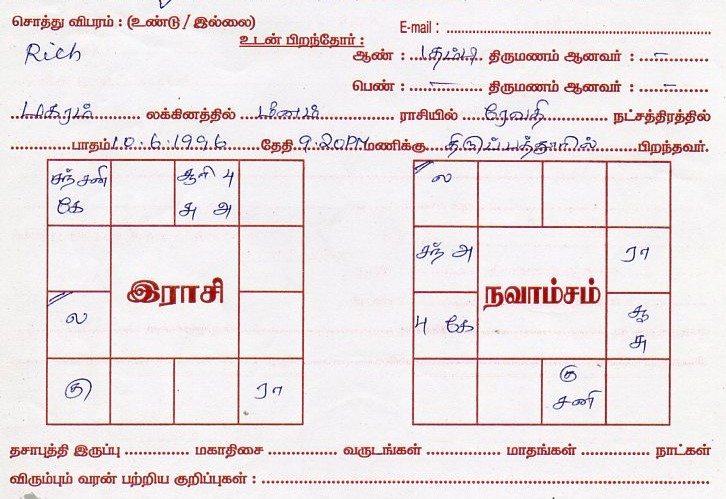 சொத்து விபரம் : (உண்டு / இல்லை)
E-mail :
Rich
உடன் பிறந்தோர் :
ஆண் : தம்பி திருமணம் ஆனவர் : –
பெண் : – திருமணம் ஆனவர் : –
மகரம் லக்கினத்தில் மீனம் ராசியில் ரேவதி நட்சத்திரத்தில்
பாதம் 10.6.1996 தேதி 9.20PM மணிக்கு திருப்பத்தூரில் பிறந்தவர்.
சந் சனி கே
பு
சு அ
இராசி
ல
கு
ரா
ல
சந் அ
ரா
நவாம்சம்
பு கே
சு
கு சனி
தசாபுத்தி இருப்பு மகாதிசை வருடங்கள் மாதங்கள் நாட்கள்
விரும்பும் வரன் பற்றிய குறிப்புகள் :